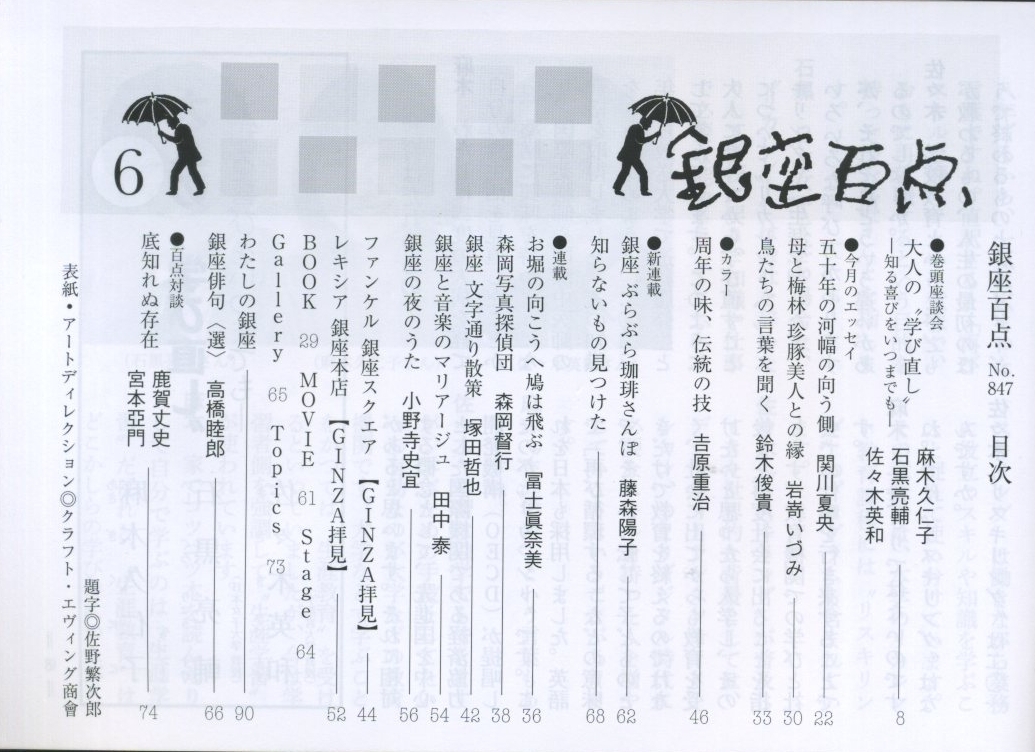 銀座百点
6
銀座百点 No.847 目次
●巻頭座談会
大人の〝学び直し〟
―知る喜びをいつまでも―
麻木久仁子
石黒亮輔 8
佐々木英和
●今月のエッセイ
五十年の河幅の向う側 関川夏央 22
母と梅林 珍豚美人との縁 岩嵜いづみ 30
鳥たちの言葉を聞く 鈴木俊貴 33
●カラー
周年の味、伝統の技 𠮷原重治 46
●新連載
銀座 ぶらぶら珈琲さんぽ 藤森陽子 62
知らないもの見つけた 68
●連載
お堀の向こうへ鳩は飛ぶ 冨士眞奈美 36
森岡写真探偵団 森岡督行 38
銀座 文字通り散策 塚田哲也 42
銀座と音楽のマリアージュ 田中 泰 54
銀座の夜のうた 小野寺史宜 56
ファンケル 銀座スクエア【GINZA拝見】 44
レキシア 銀座本店【GINZA拝見】 52
BOOK 29 MOVIE 61 Stage 64
Gallery 65 Topics 73
わたしの銀座 90
銀座俳句〈選〉 高橋睦郎 66
●百点対談
底知れぬ存在 鹿賀丈史
宮本亞門 74
題字◎佐野繁次郎
表紙・アートディレクション◎クラフト・エヴィング商會